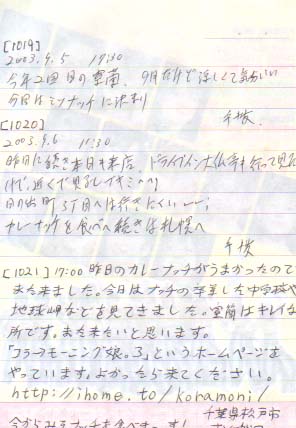 [1019]
2003.9.5 17:30
今年2回目の室蘭 9月だけど涼しくて気分いい
今日はミソナッチに決まり
千坂
[1020]
2003.9.6 11:30
昨日に続き本日も来店、ドライブイン大仏寺も行って見た
けど、近くで見るしイキミ
日の出町3丁目へは行きにくい
カレーナッチを食べ 続きは札幌へ
千坂
[1021] 17:00 昨日のカレーナッチがうまかったので
また来ました。今日はナッチの卒業した中学校や
地球岬などを見てきました。室蘭はキレイな
所です。また来たいと思います。
「コラっモーニング娘。3」というホームページを
やっています。よかったら来てください。
http://ihome.to/koramoni/
千葉県松戸市
今からみそナッチを食べまーす!